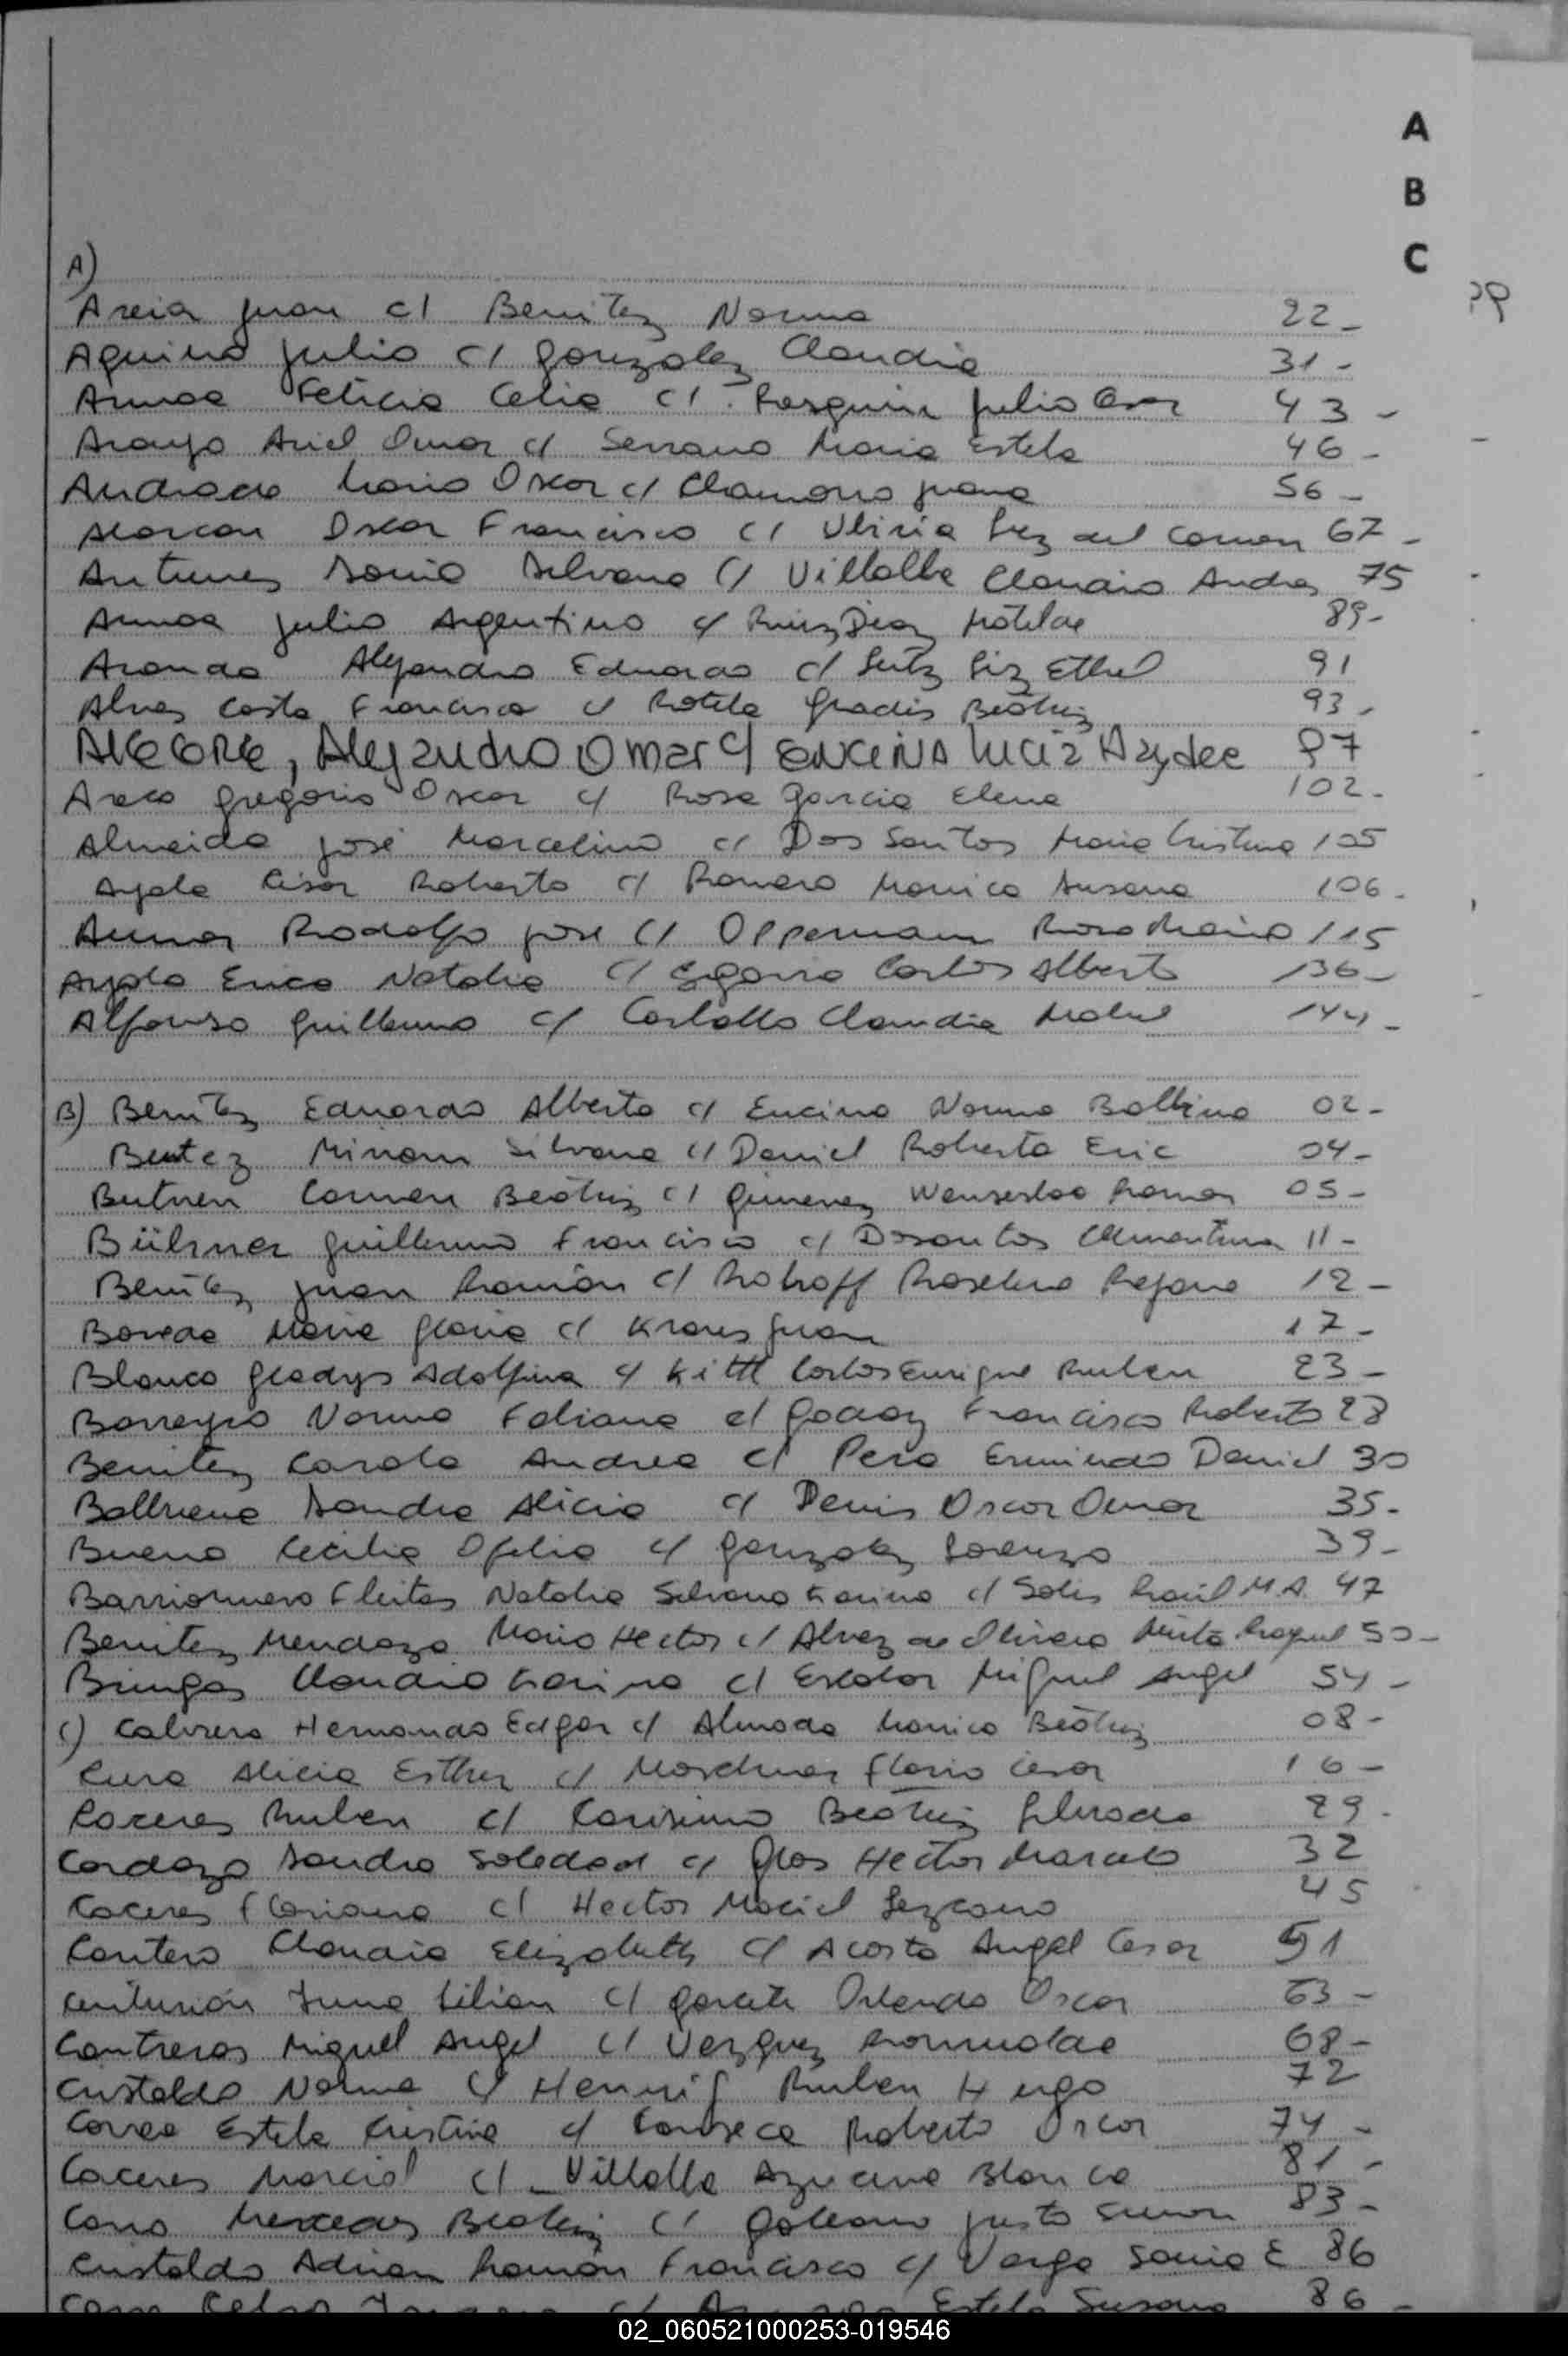 A
B
C
A)
Areia Juan c/ Benitez Norma 22-
Aquino Julio c/ Gonzalez Claudia 31-
Armoa Felicia Celia c/ Julio 43-
Araujo Ariel Omar c/ Serrano Maria Estela 46-
Andrade Mario Oscar c/ Chamorro Juana 56-
Alarcon Oscar Francisco c/ Liz del Carmen 67-
Antunez Sonia Silvana c/ Villalba Claudio Andres 75
Armoa Julio Argentino c/ Ruiz Diaz Matilde 89-
Aranda Alejandro Eduardo c/ Liz Ethel 91
Alvez Costa Francisco c/ Rotela Gladis Beatriz 93-
Alegre, Alejandro Omar c/ Encina Lucia Haydee 97
Areco Gregorio Oscar c/ Rosa Garcia Elena 102-
Almeida José Marcelino c/ Dos Santos Maria Cristina 105
Ayala Cesar Roberto c/ Romero Monica Susana 106-
Rodolfo Jose c/ Oppermann Rosa Maria 115
Ayala Erica Natalia c/ Carlos Alberto 136-
Alfonso Guillermo c/ Claudia Mabel 144-
B) Benitez Eduardo Alberto c/ Encina Norma Balbina 02-
Benitez Miriam Silvana c/ Daniel Roberto Eric 04-
Carmen Beatriz c/ Gimenez Wenseslao Ramon 05-
Bührer Guillermo Francisco c/ Dosantos Clementina 11-
Benitez Juan Ramón c/ Roselena Rejane 12-
Maria Gloria c/ Juan 17-
Blanco Gladys Adolfina c/ Kittl Carlos Enrique Ruben 23-
Barreyro Norma Fabiana c/ Godoy Francisco Roberto 28
Benitez Carola Andrea c/ Ermindo Daniel 30
Balbuena Sandra Alicia c/ Denis Oscar Omar 35-
Bueno Cecilia Ofelia c/ Gonzalez Lorenzo 39-
Barrionuevo Fleitas Natalia Silvana Karina c/ Solis Raúl M.A. 47
Benitez Mendoza Mario Hector c/ Alvez de Olivera Mirta Raquel 50-
Bringas Claudia Karina c/ Escobar Miguel Angel 54-
C) Cabrera Hernando Edgar c/ Almada Monica Beatriz 08-
Alicia Esther c/ Cesar 16-
Caceres Ruben c/ Beatriz 29-
Cardozo Sandra Soledad c/ Hector Marcelo 32
Caceres Floriana c/ Hector Maciel Lezcano 45
Cantero Claudia Elizabeth c/ Acosta Angel Cesar 51
Centurión Lilian c/ Orlando Oscar 63-
Contreras Miguel Angel c/ Vazquez Romualda 68-
Cristaldo Norma c/ Hennig Ruben Hugo 72
Correa Estela Cristina c/ Fonseca Roberto Oscar 74-
Caceres Marcial c/ Villalba Azucena Blanca 81-
Cano Mercedes Beatriz c/ Galeano Justo Simon 83-
Cristaldo Adrian Ramón Francisco c/ Varga Sonia E 86
Estela Susana 86-
02_060521000253-019546